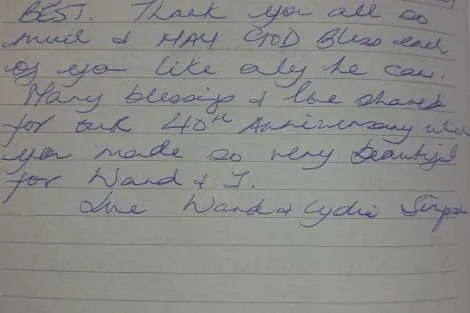 BEST. Thank you all so
much & MAY GOD Bless each
of you like only he can.
Many blessings & love shared
for our 40th Anniversary which
you made so very beautiful
for Ward & I.
Love Ward & Lydia